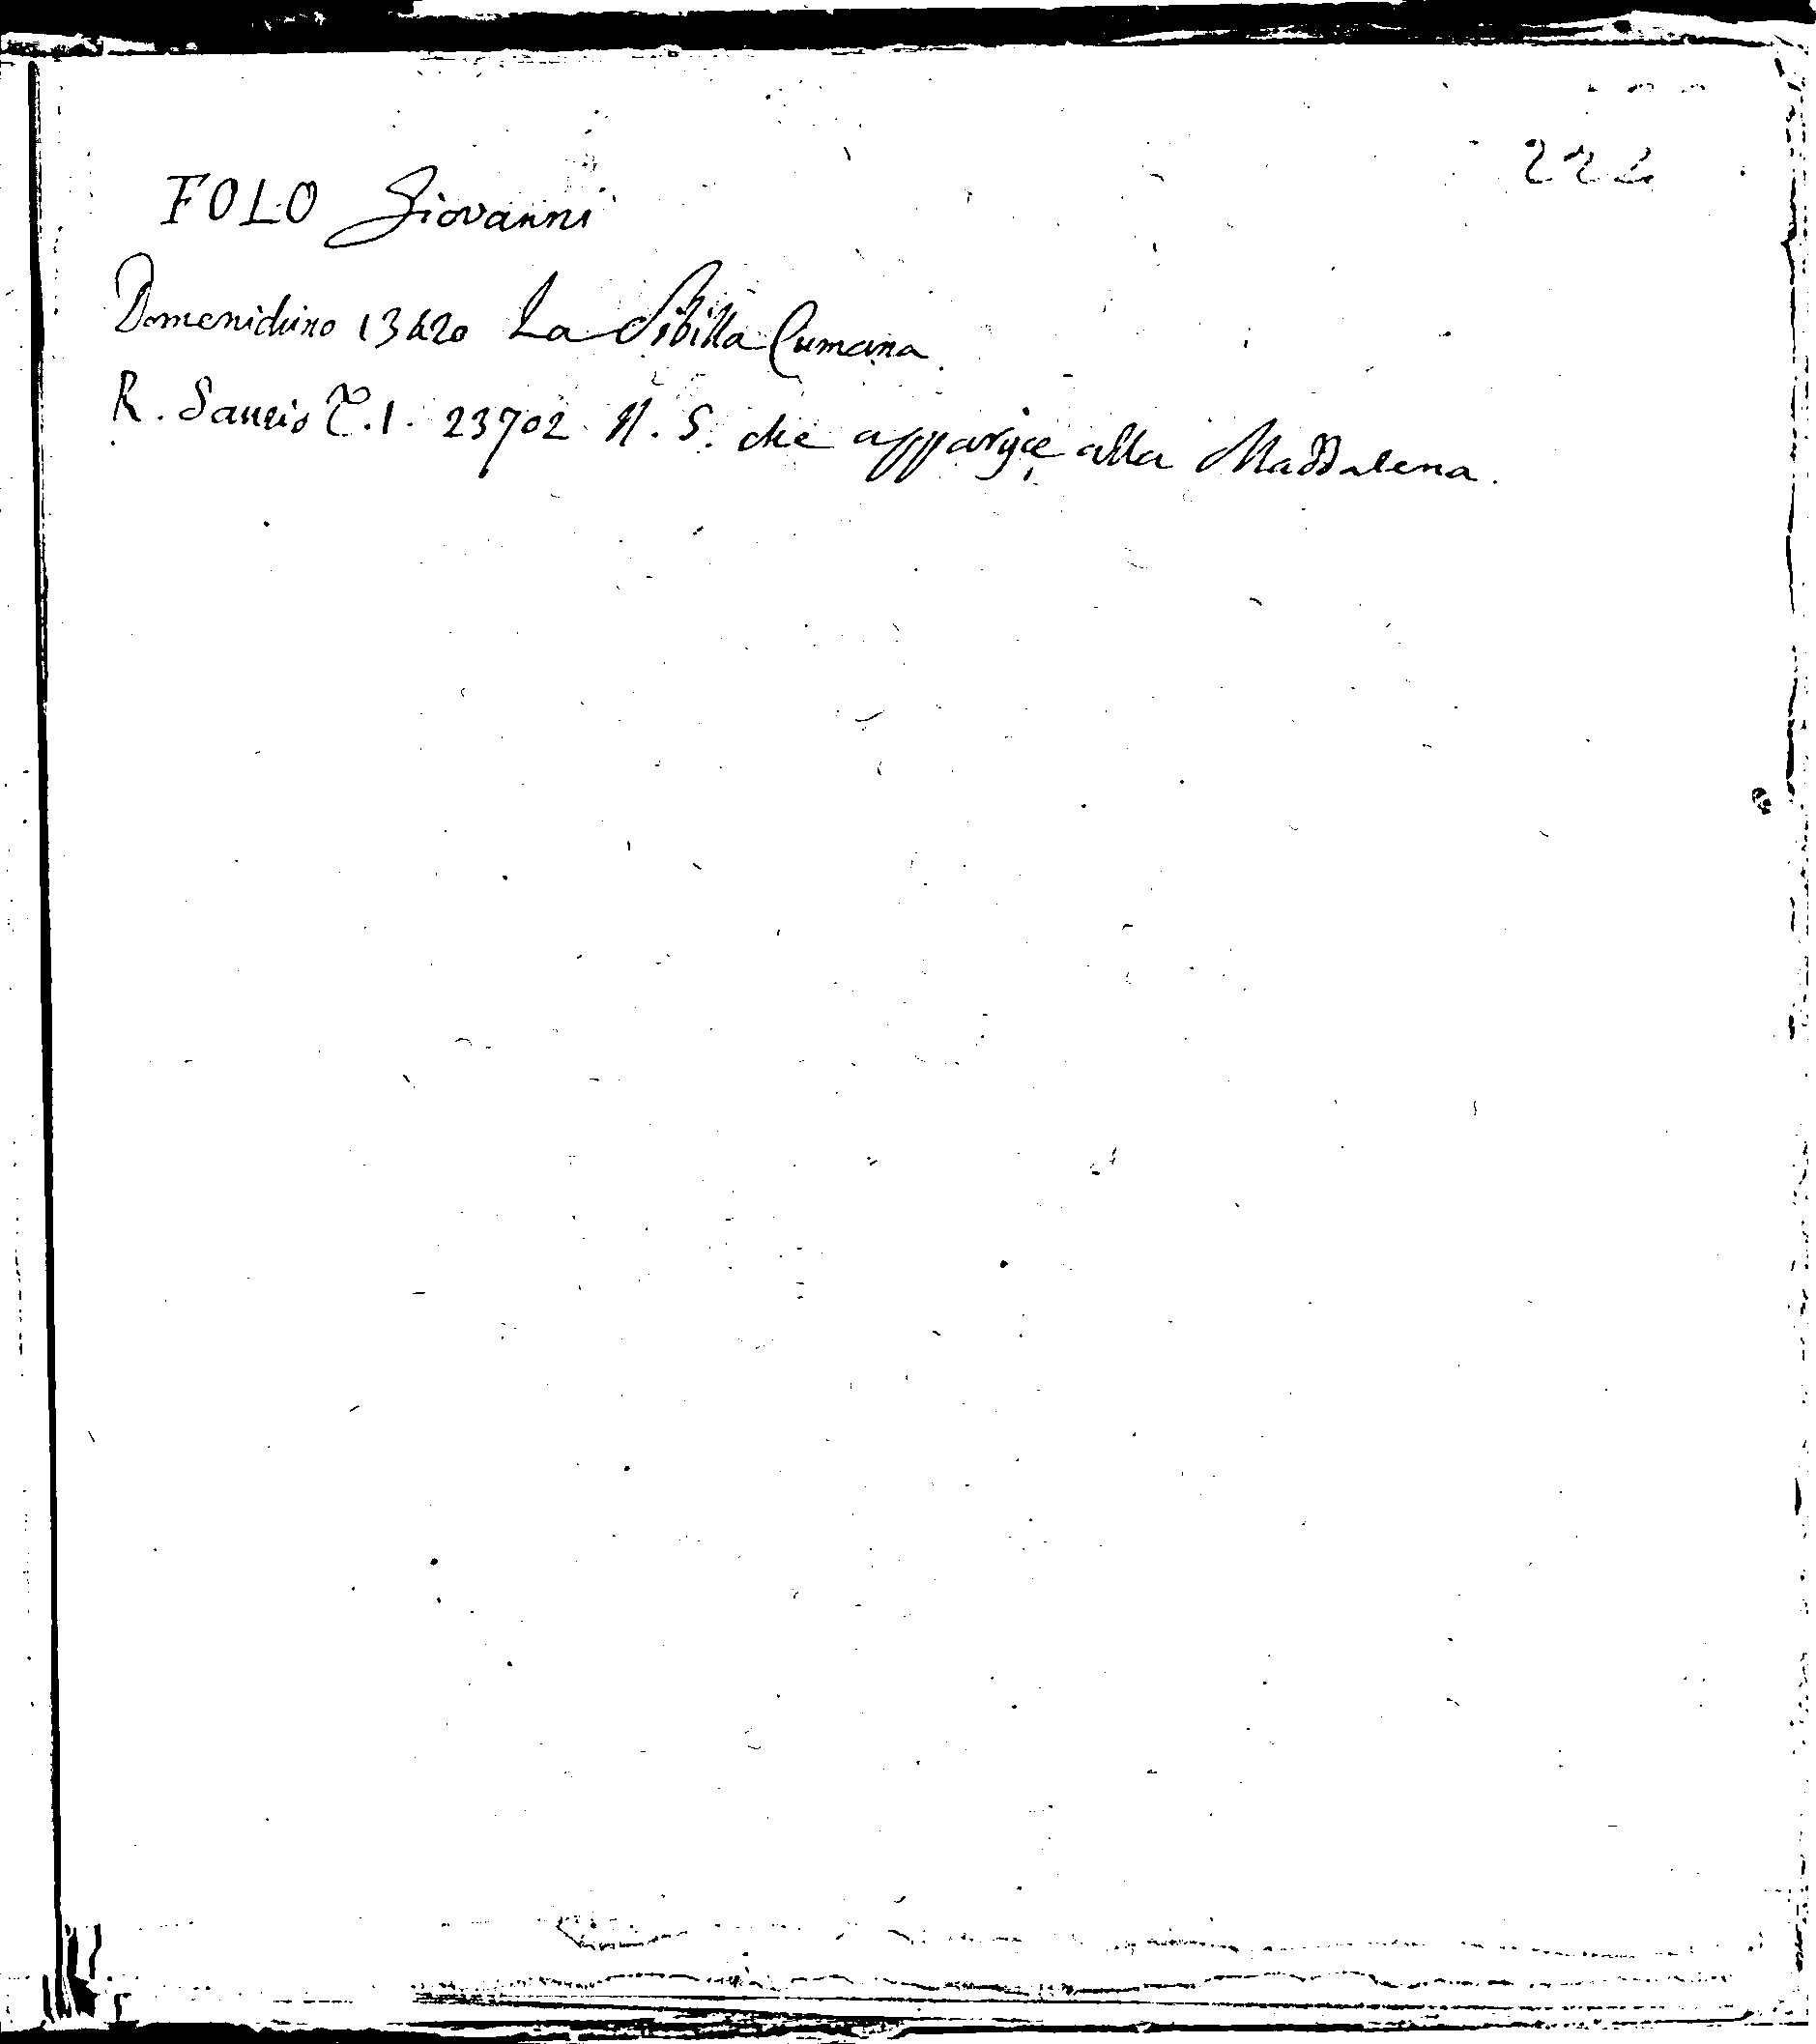 222
FOLO Giovanni
Domenichino 13420 La Sibilla Cumana
R. Sanzio T.1. 23702 N. S. che apparisce alla Maddalena.